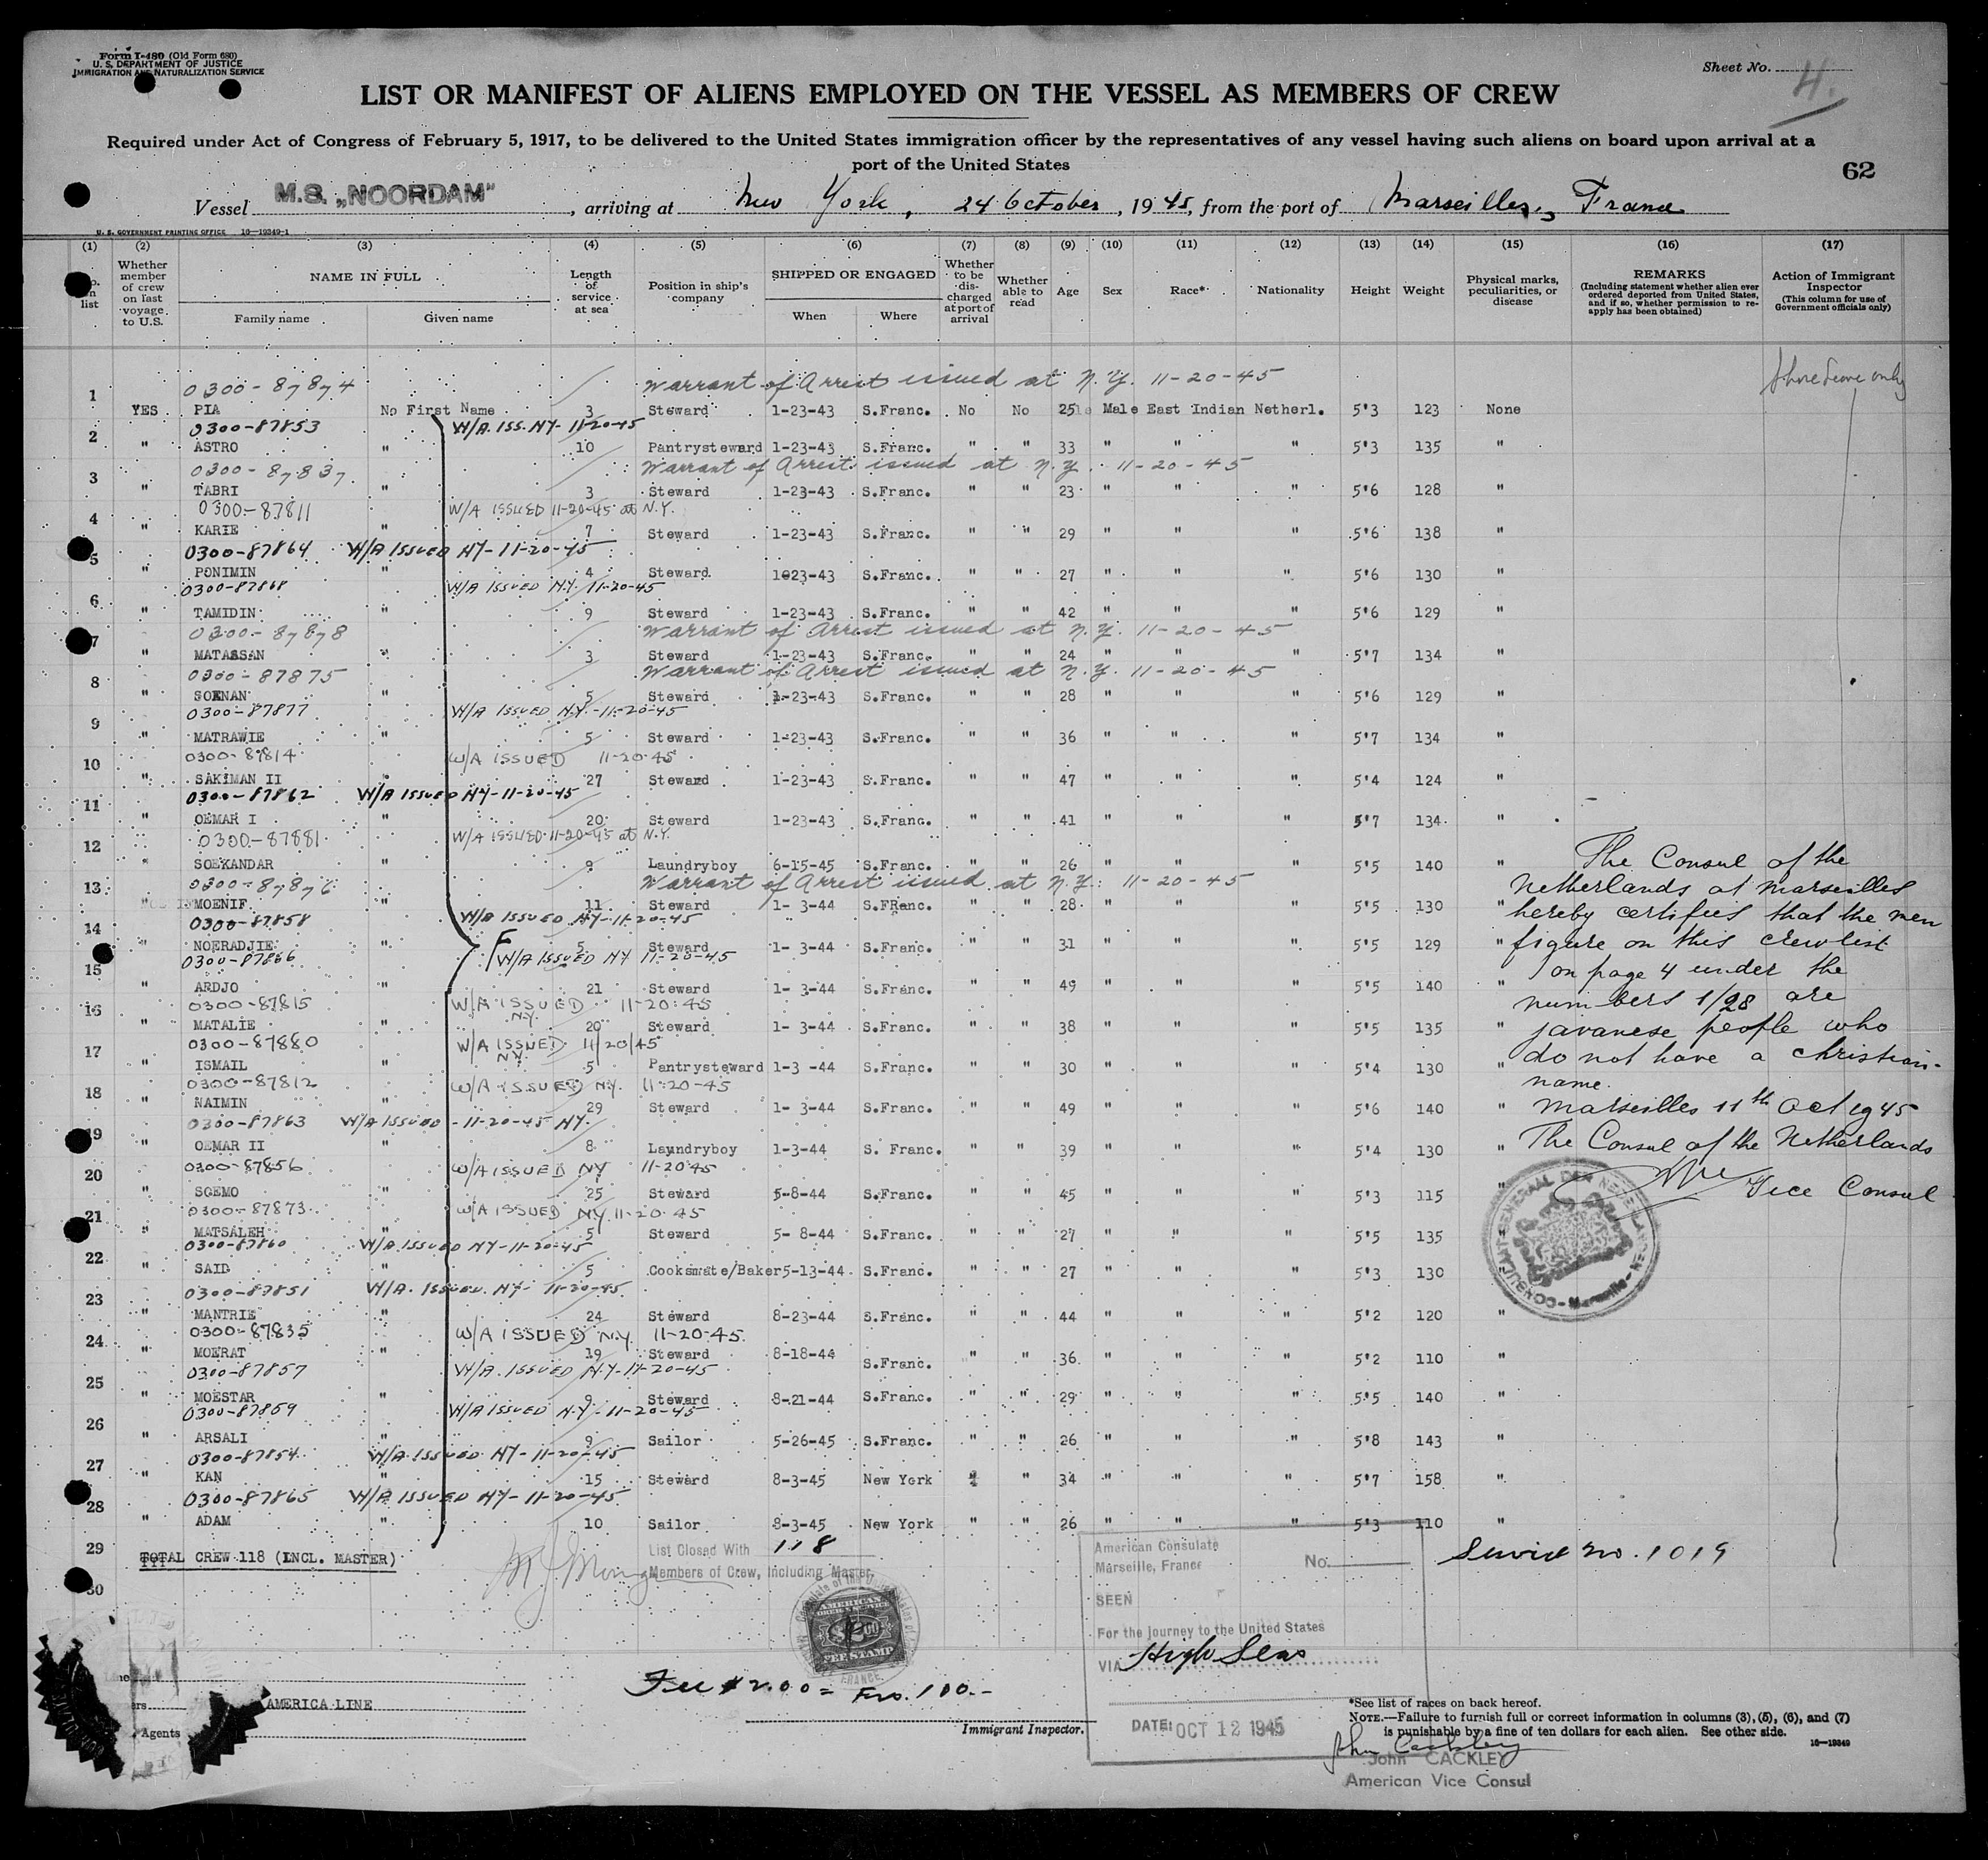 Form I-480 (Old Form 680)
U. S. DEPARTMENT OF JUSTICE
IMMIGRATION AND NATURALIZATION SERVICE
Sheet No. 4.
LIST OR MANIFEST OF ALIENS EMPLOYED ON THE VESSEL AS MEMBERS OF CREW
Required under Act of Congress of February 5, 1917, to be delivered to the United States immigration officer by the representatives of any vessel having such aliens on board upon arrival at a
port of the United States
62
Vessel M.S. „NOORDAM", arriving at New York, 24 October, 1945, from the port of Marseilles, France
U. S. GOVERNMENT PRINTING OFFICE 16—19349-1
(1) (2) (3) (4) (5) (6) (7) (8) (9) (10) (11) (12) (13) (14) (15) (16) (17)
list
Whether member of crew on last voyage to U.S.
NAME IN FULL
Family name Given name
Length of service at sea
Position in ship's company
SHIPPED OR ENGAGED
When Where
Whether to be discharged at port of arrival
Whether able to read
Age Sex Race* Nationality Height Weight
Physical marks, peculiarities, or disease
REMARKS
(Including statement whether alien ever ordered deported from United States, and if so, whether permission to reapply has been obtained)
Action of Immigrant Inspector
(This column for use of Government officials only)
Shore Leave only
0300-87874 Warrant of Arrest issued at N.Y. 11-20-45
1 YES PIA No First Name 3 Steward 1-23-43 S.Franc. No No 25 Male East Indian Netherl. 5'3 123 None
0300-87853 W/A. ISS. NY- 11-20-45
2 " ASTRO " 10 Pantrysteward 1-23-43 S.Franc. " " 33 " " " 5'3 135 "
0300-87837 Warrant of Arrest issued at N.Y. 11-20-45
3 " TABRI " 3 Steward 1-23-43 S.Franc. " " 23 " " " 5'6 128 "
0300-87811 W/A ISSUED 11-20-45 at N.Y.
4 " KARIE " 7 Steward 1-23-43 S.Franc. " " 29 " " " 5'6 138 "
0300-87864 W/A ISSUED NY-11-20-45
5 " PONIMIN " 4 Steward 1023-43 S.Franc. " " 27 " " " 5'6 130 "
0300-87868 W/A ISSUED N.Y. 11-20-45
6 " TAMIDIN " 9 Steward 1-23-43 S.Franc. " " 42 " " " 5'6 129 "
0300-87878 Warrant of Arrest issued at N.Y. 11-20-45
7 " MATASSAN " 3 Steward 1-23-43 S.Franc. " " 24 " " " 5'7 134 "
0300-87875 Warrant of Arrest issued at N.Y. 11-20-45
8 " SOENAN " 5 Steward 1-23-43 S.Franc. " " 28 " " " 5'6 129 "
0300-87877 W/A ISSUED N.Y.-11-20-45
9 " MATRAWIE " 5 Steward 1-23-43 S.Franc. " " 36 " " " 5'7 134 "
0300-87814 W/A ISSUED 11-20-45
10 " SAKIMAN II " 27 Steward 1-23-43 S.Franc. " " 47 " " " 5'4 124 "
0300-87862 W/A ISSUED NY-11-20-45
11 " OEMAR I " 20 Steward 1-23-43 S.Franc. " " 41 " " " 5'7 134 "
0300-87881 W/A ISSUED 11-20-45 at N.Y.
12 " SOEKANDAR " 9 Laundryboy 6-15-45 S.Franc. " " 26 " " " 5'5 140 "
0300-87876 Warrant of Arrest issued at N.Y. 11-20-45
13 MOENIF " 11 Steward 1- 3-44 S.FRanc. " " 28 " " " 5'5 130 "
0300-87858 W/A ISSUED NY-11-20-45
14 " NOERADJIE " 5 Steward 1- 3-44 S.Franc. " " 31 " " " 5'5 129 "
0300-87866 W/A ISSUED NY 11-20-45
15 " ARDJO " 21 Steward 1- 3-44 S.Franc. " " 49 " " " 5'5 140 "
0300-87815 W/A ISSUED N.Y. 11-20-45
16 " MATALIE " 20 Steward 1- 3-44 S.Franc. " " 38 " " " 5'5 135 "
0300-87880 W/A ISSUED N.Y. 11/20/45
17 " ISMAIL " 5 Pantrysteward 1-3 -44 S.Franc. " " 30 " " " 5'4 130 "
0300-87812 W/A ISSUED N.Y. 11-20-45
18 " NAIMIN " 29 Steward 1- 3-44 S.Franc. " " 49 " " " 5'6 140 "
0300-87863 W/A ISSUED - 11-20-45 NY.
19 " OEMAR II " 8 Laundryboy 1-3-44 S. Franc. " " 39 " " " 5'4 130 "
0300-87856 W/A ISSUED NY 11-20-45
20 " SOEMO " 25 Steward 5-8-44 S.Franc. " " 45 " " " 5'3 115 "
0300-87873 W/A ISSUED NY 11-20-45
21 " MATSALEH " 5 Steward 5- 8-44 S.Franc. " " 27 " " " 5'5 135 "
0300-87860 W/A ISSUED NY-11-20-45
22 " SAID " 5 Cooksmate/Baker 5-13-44 S.Franc. " " 27 " " " 5'3 130 "
0300-87851 W/A. ISSUED. NY- 11-20-45
23 " MANTRIE " 24 Steward 8-23-44 S.Franc. " " 44 " " " 5'2 120 "
0300-87835 W/A ISSUED N.Y. 11-20-45.
24 " MOERAT " 19 Steward 8-18-44 S.Franc. " " 36 " " " 5'2 110 "
0300-87857 W/A. ISSUED N.Y-11-20-45
25 " MOESTAR " 9 Steward 8-21-44 S.Franc. " " 29 " " " 5'5 140 "
0300-87859 W/A ISSUED N.Y-11-20-45
26 " ARSALI " 9 Sailor 5-26-45 S.Franc. " " 26 " " " 5'8 143 "
0300-87854 W/A ISSUED NY-11-20-45
27 " KAN " 15 Steward 8-3-45 New York " " 34 " " " 5'7 158 "
0300-87865 W/A ISSUED NY-11-20-45
28 " ADAM " 10 Sailor 8-3-45 New York " " 26 " " " 5'3 110 "
29 TOTAL CREW 118 (INCL. MASTER)
30
The Consul of the
Netherlands at Marseilles
hereby certifies that the men
figure on this crewlist
on page 4 under the
numbers 1/28 are
javanese people who
do not have a christian-
name.
Marseilles 11th Oct 1945
The Consul of the Netherlands
Vice Consul
CONSULAAT-GENERAAL DER NEDERLANDEN - Marseille
List Closed With 118
Members of Crew, Including Master.
AMERICAN
FOREIGN SERVICE
FEE STAMP
FRANCE
Fee $2.00 = Frs. 100.-
American Consulate
Marseille, France
No.
SEEN
For the journey to the United States
VIA High Seas
DATE: OCT 12 1945
Service No. 1019
AMERICA LINE
Agents
Immigrant Inspector.
*See list of races on back hereof.
NOTE.—Failure to furnish full or correct information in columns (3), (5), (6), and (7)
is punishable by a fine of ten dollars for each alien. See other side.
16—19349
John Cackley
John CACKLEY
American Vice Consul